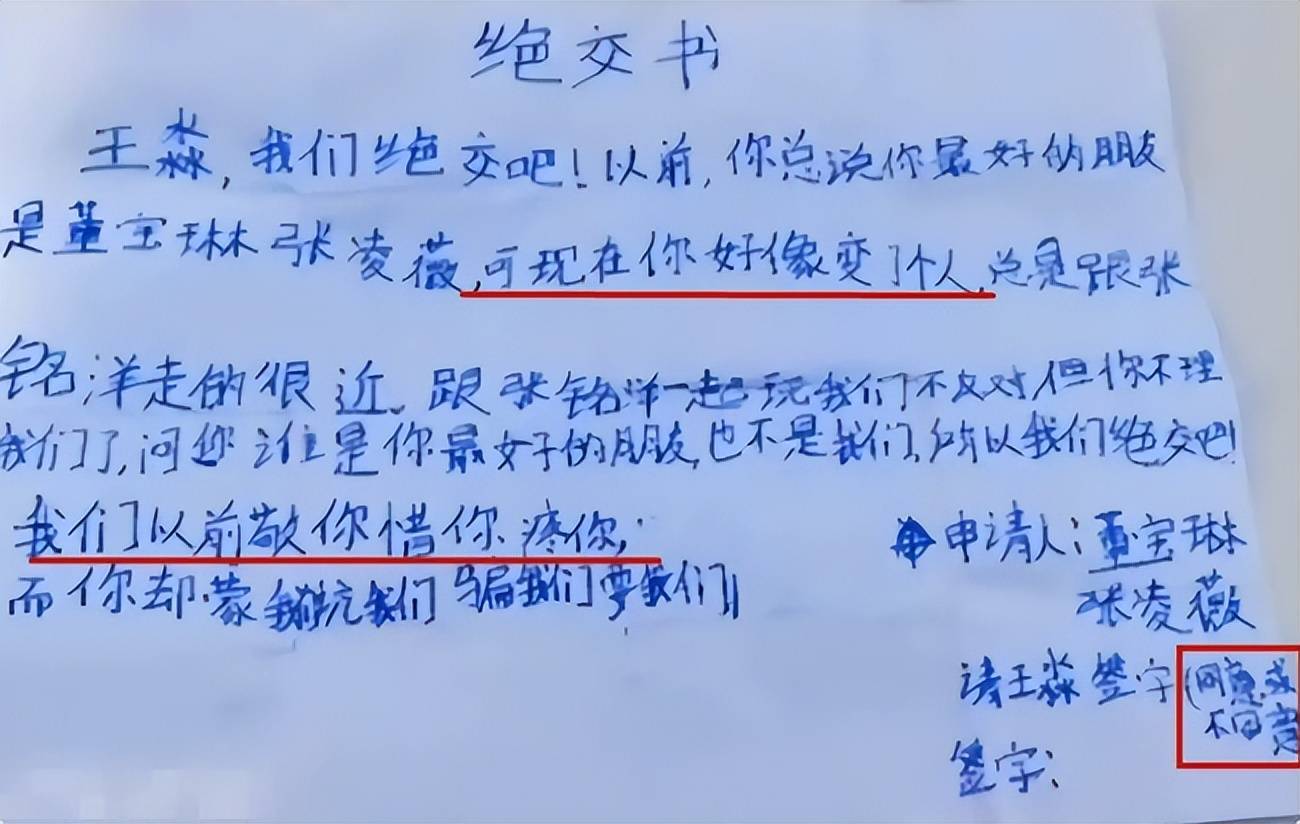 绝交书
王淼,我们绝交吧!以前,你总说你最好的朋友
是董宝琳张凌薇,可现在你好像变了个人,总是跟张
铭洋走的很近。跟张铭洋一起玩我们不反对但你不理
我们了,问你谁是你最好的朋友,也不是我们,所以我们绝交吧!
我们以前敬你惜你疼你,
而你却蒙我们坑我们骗我们耍我们!
申请人:董宝琳
张凌薇
请王淼签字(同意或
不同意
签字: